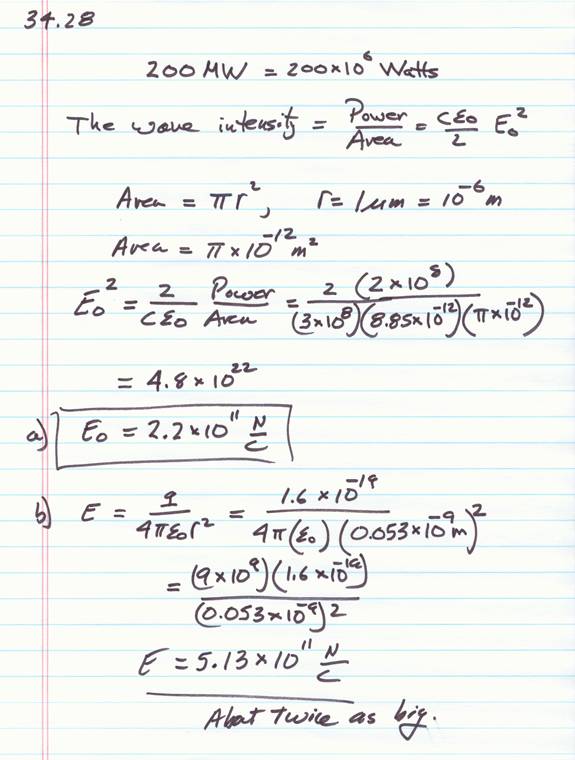 34.28
200 MW = 200×10⁶ Watts
The wave intensity = Power/Area = cε₀/2 E₀²
Area = πr², r = 1 um = 10⁻⁶ m
Area = π×10⁻¹² m²
E₀² = 2/(cε₀) Power/Area = 2 (2×10⁸)/((3×10⁸)(8.85×10⁻¹²)(π×10⁻¹²))
= 4.8×10²²
a) E₀ = 2.2×10¹¹ N/C
b) E = q/(4πε₀r²) = 1.6×10⁻¹⁹/(4π(ε₀)(0.053×10⁻⁹m)²)
= (9×10⁹)(1.6×10⁻¹⁹)/(0.053×10⁻⁹)2
E = 5.13×10¹¹ N/C
About twice as big.